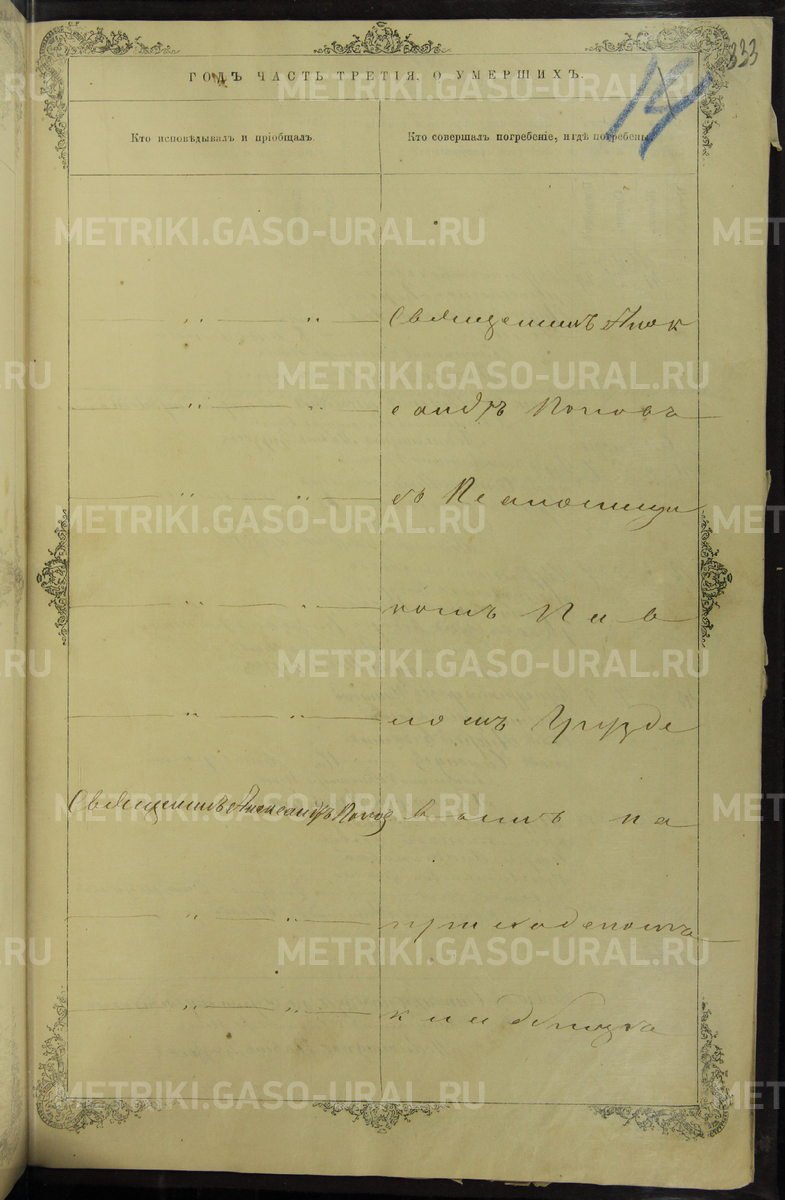 333
14
ГОДЪ ЧАСТЬ ТРЕТІЯ. О УМЕРШИХЪ.
Кто исповѣдывалъ и пріобщалъ.
Кто совершалъ погребеніе, и гдѣ погребены.
METRIKI.GASO-URAL.RU
Священникъ Алек
сандръ Поповъ
съ
комъ Пав
ломъ Грузде
Священникъ Александръ Попов
вымъ на
приходскомъ
кладбищѣ